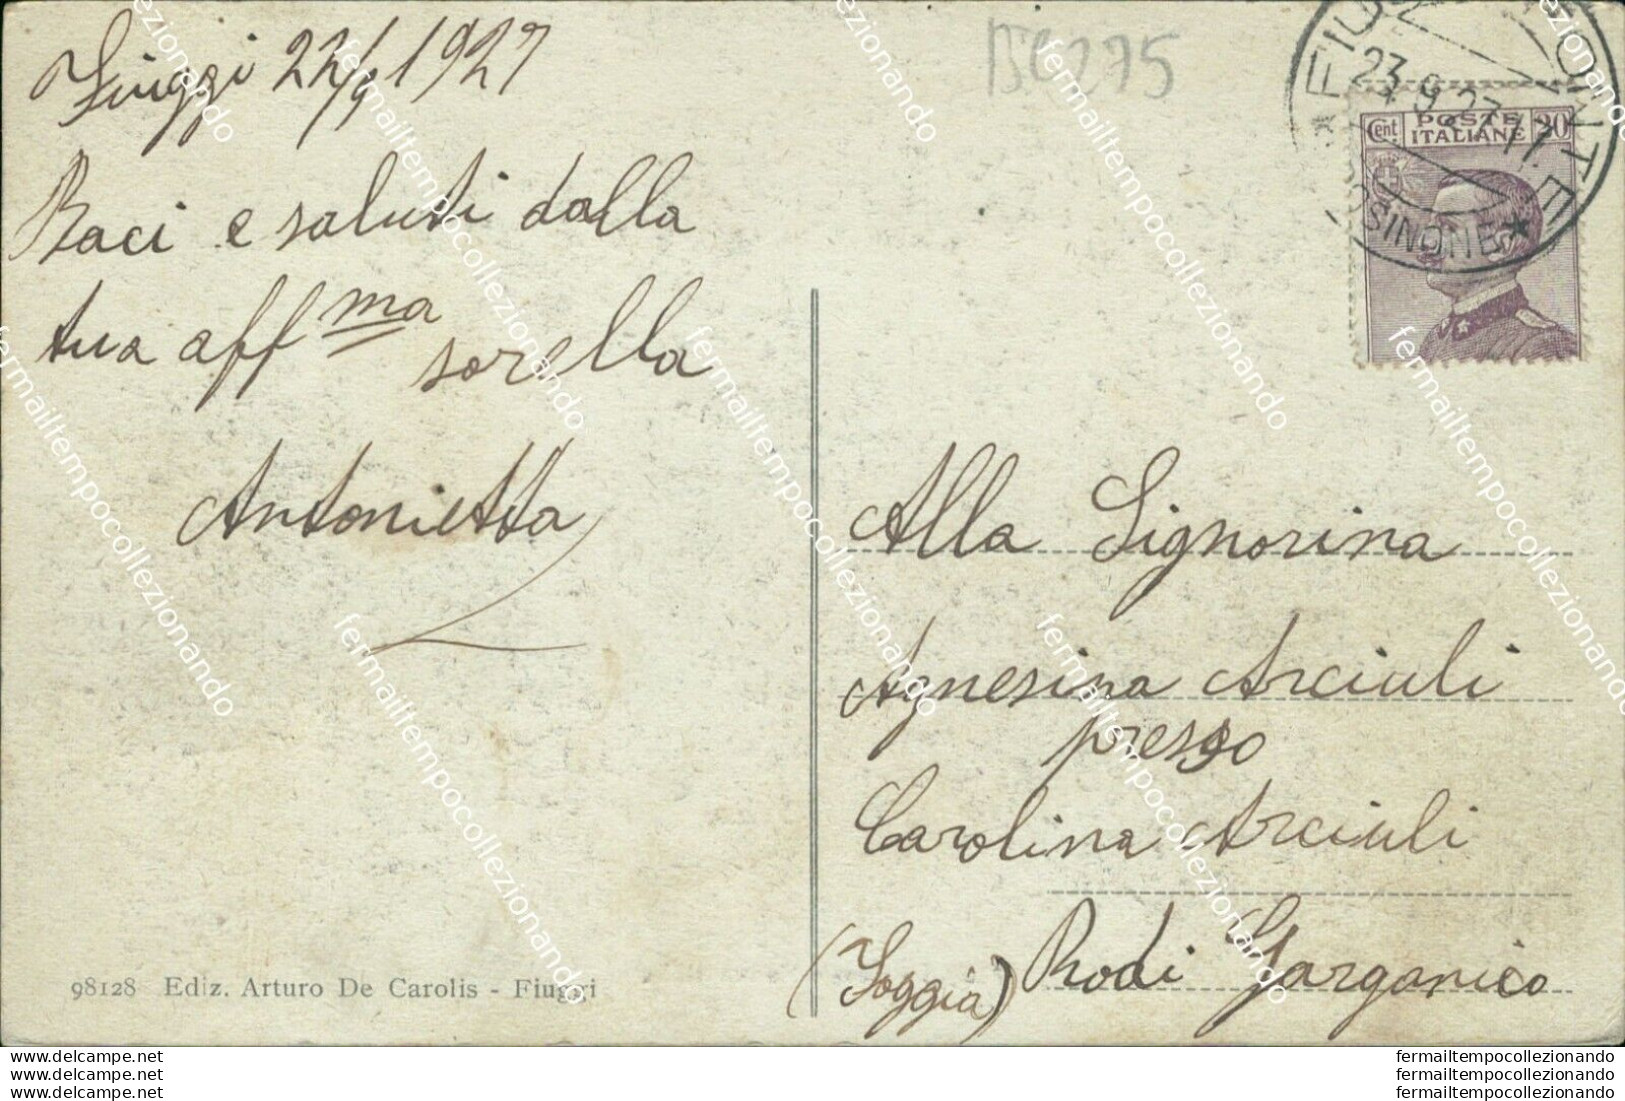 Fiuggi 22/9 1927
Baci e saluti dalla
tua aff ma
sorella
Antonietta
98128 Ediz. Arturo De Carolis - Fiuggi
BC275
23.9.27.17.
OSINONE *
Cent POSTE ITALIANE 20
Alla Signorina
Agnesina Arciuli
presso
Carolina Arciuli
(Foggia) Rodi Garganico
fermailtempocollezionando
www.delcampe.net
www.delcampe.net
www.delcampe.net
fermailtempocollezionando
fermailtempocollezionando
fermailtempocollezionando